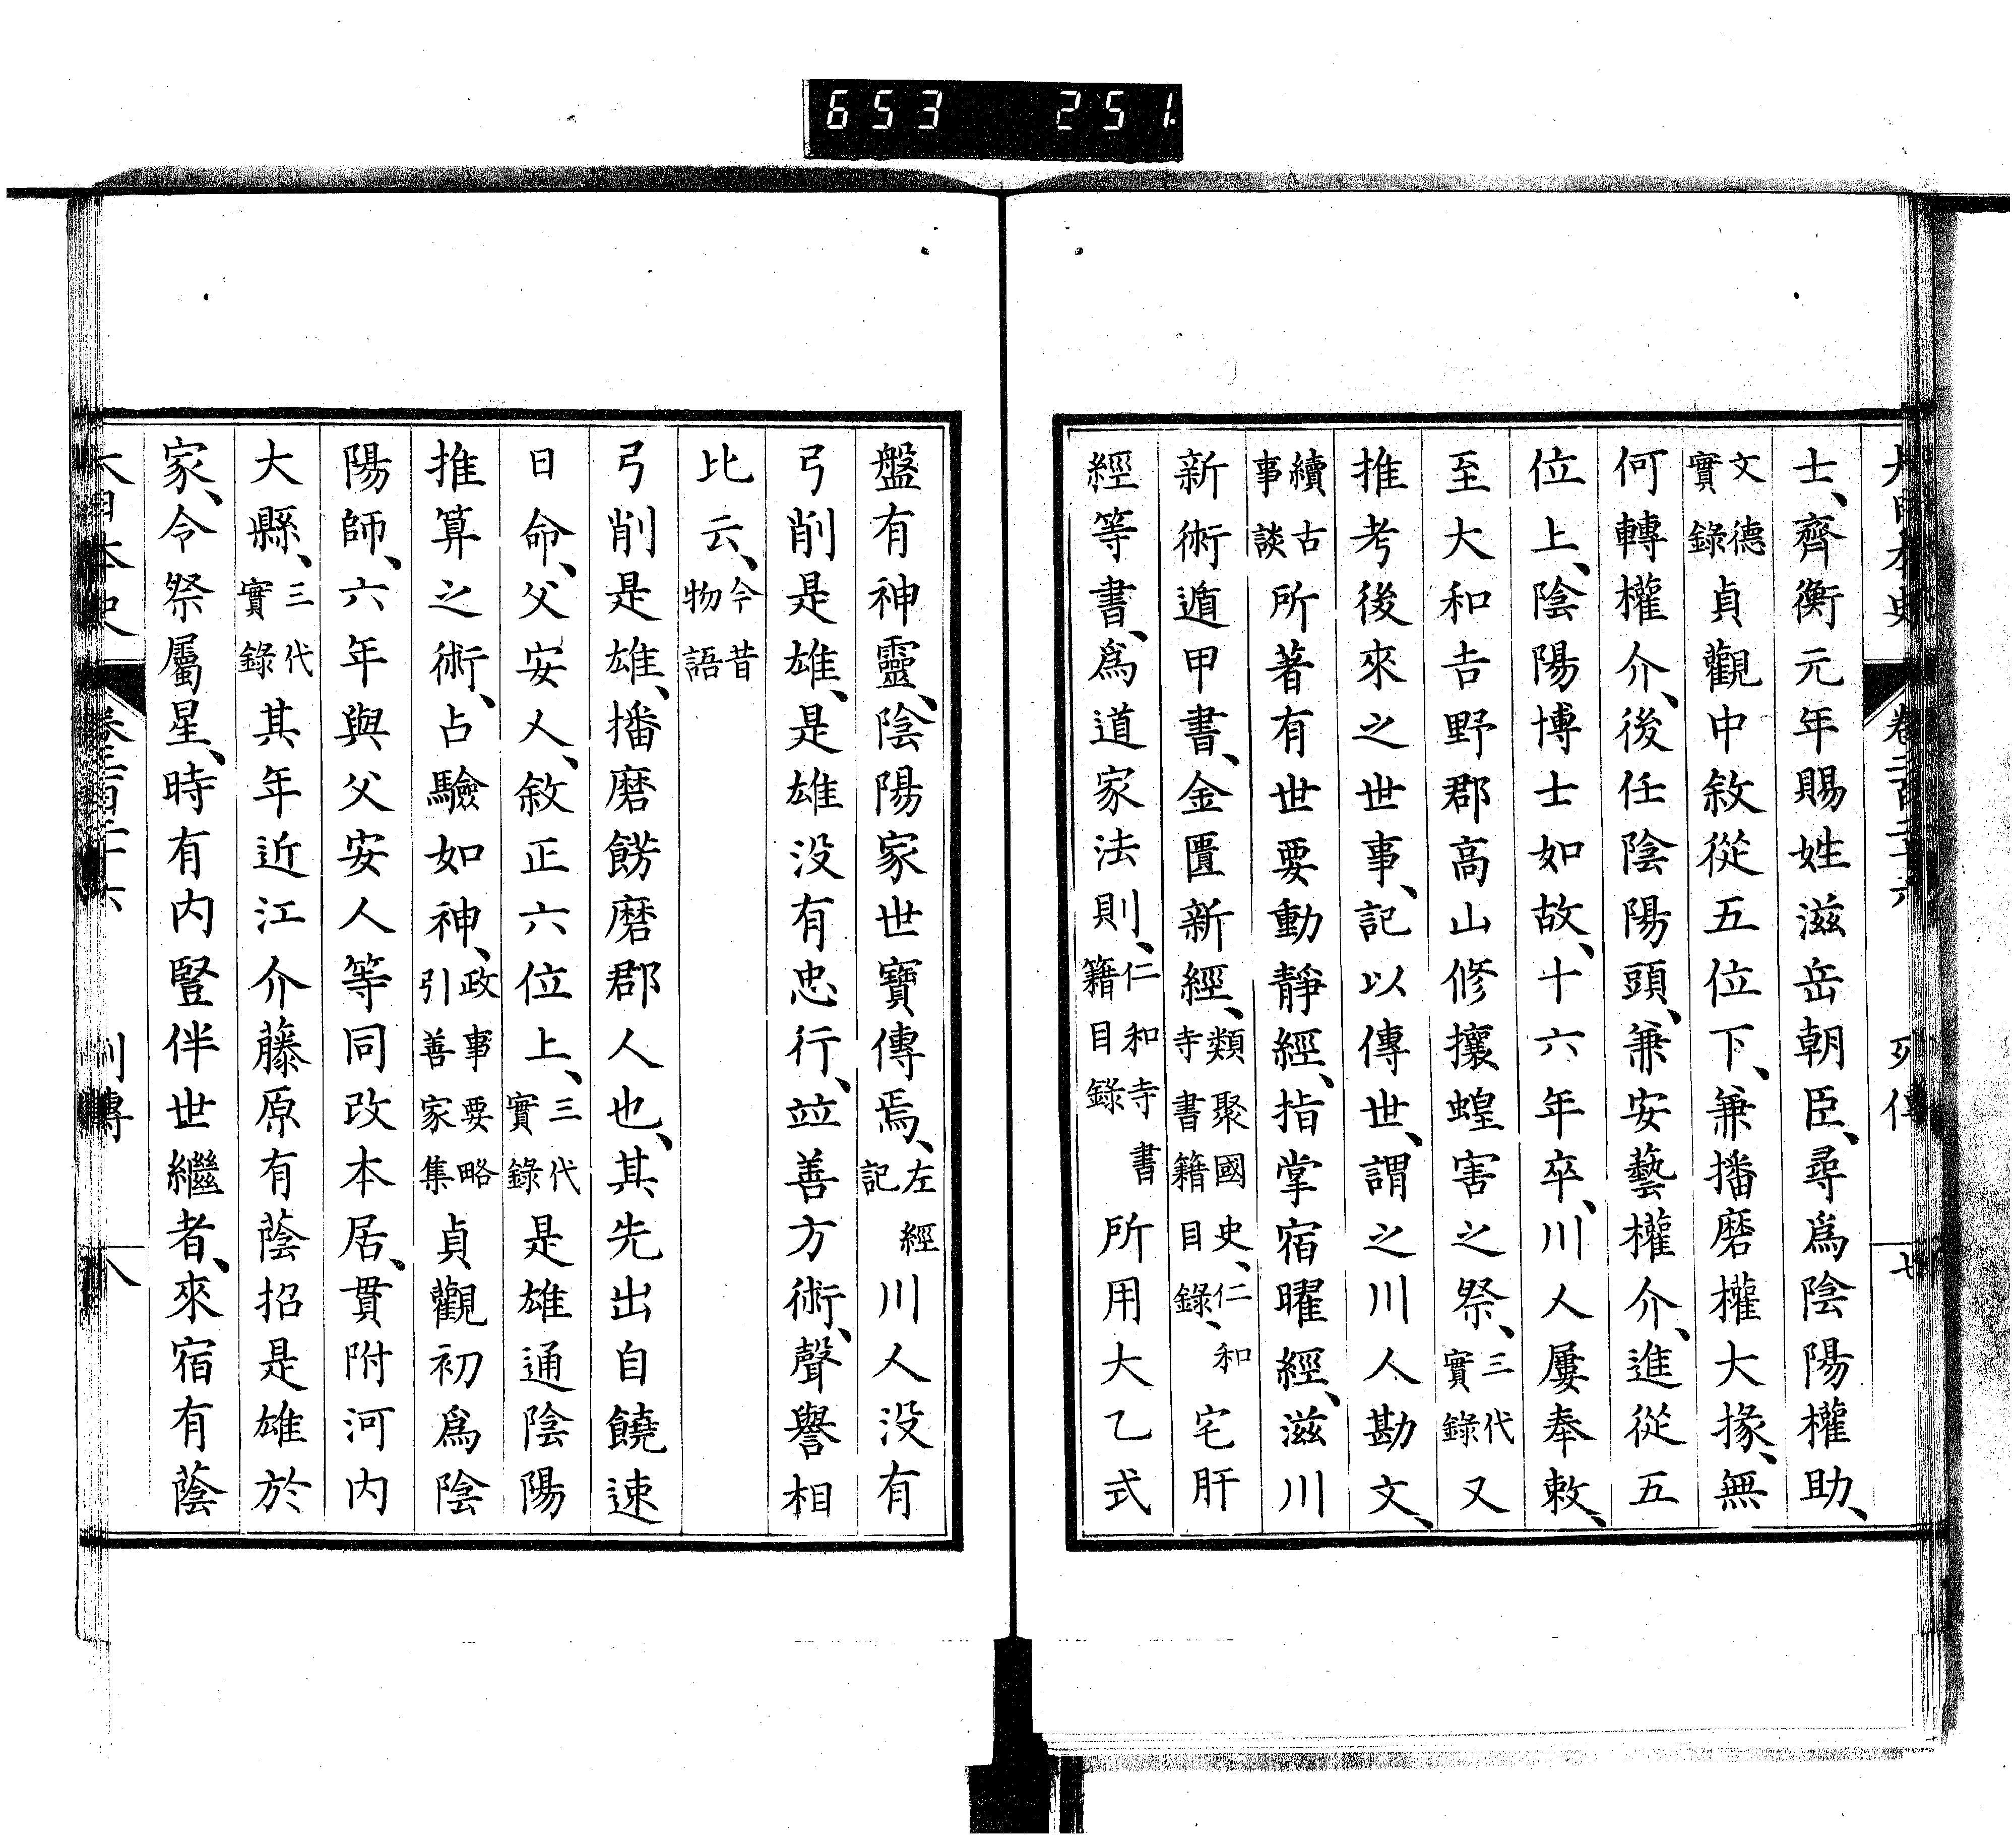 653 251
大日本史 卷二百二十六 列傳 七
士、齊衡元年賜姓滋岳朝臣、尋爲陰陽權助、
文德實錄貞觀中敘從五位下、兼播磨權大掾、無
何轉權介、後任陰陽頭、兼安藝權介、進從五
位上、陰陽博士如故、十六年卒、川人屢奉敕、
至大和吉野郡高山修攘蝗害之祭、三代實錄又
推考後來之世事、記以傳世、謂之川人勘文、
續古事談所著有世要動靜經、指掌宿曜經、滋川
新術遁甲書、金匱新經、類聚國史、仁和寺書籍目錄、宅肝
經等書、爲道家法則、仁和寺書籍目錄所用大乙式
盤有神靈、陰陽家世寶傳焉、左經記川人没有
弓削是雄、是雄没有忠行、竝善方術、聲譽相
比云、今昔物語
弓削是雄、播磨餝磨郡人也、其先出自饒速
日命、父安人、敘正六位上、三代實錄是雄通陰陽
推算之術、占驗如神、政事要略引善家集貞觀初爲陰
陽師、六年與父安人等同改本居、貫附河内
大縣、三代實錄其年近江介藤原有蔭招是雄於
家、令祭屬星、時有内豎伴世繼者、來宿有蔭
大日本史 卷二百二十六 列傳 八